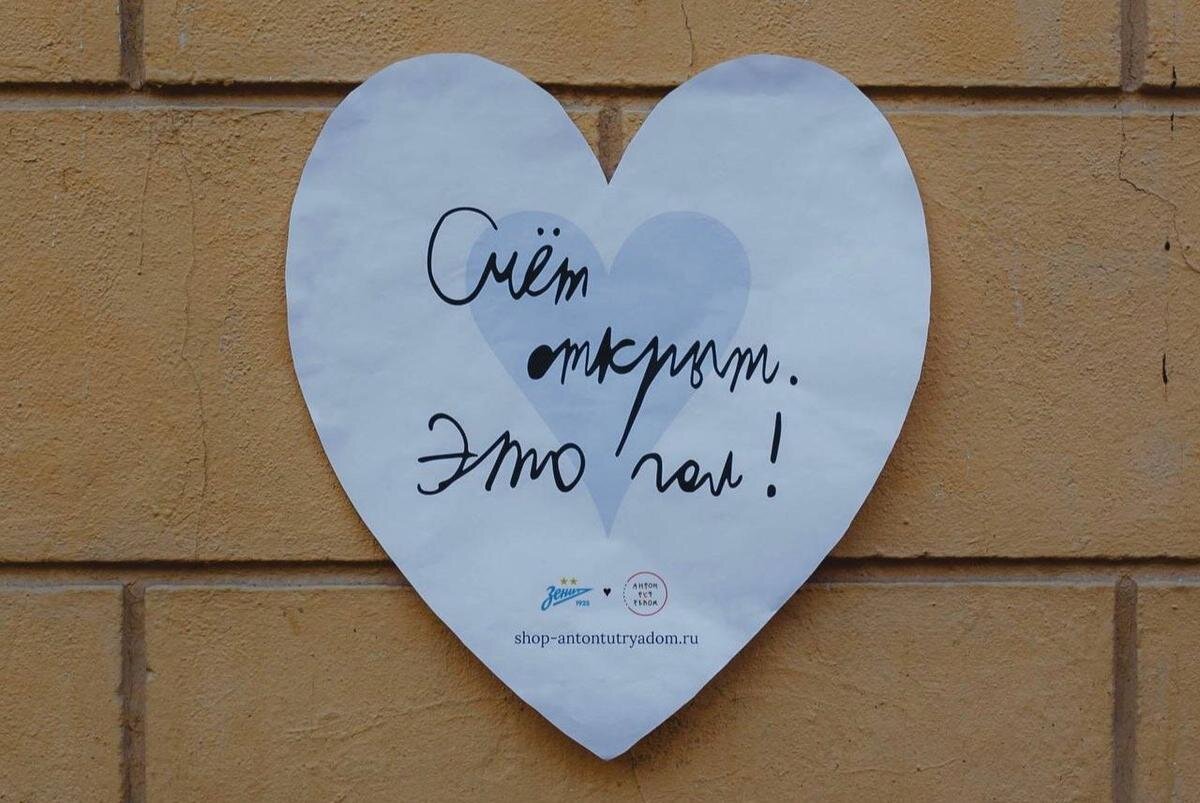 Счёт
открыт.
Это гол!
Зенит 1925 ♥ АНТОН ТУТ РЯДОМ
shop-antontutryadom.ru